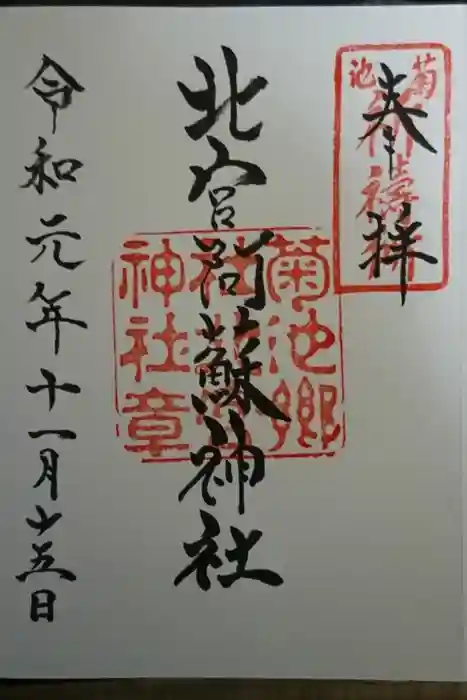 菊池
奉拝
北宮阿蘇神社
菊池郷
神社章
令和元年十一月廿五日